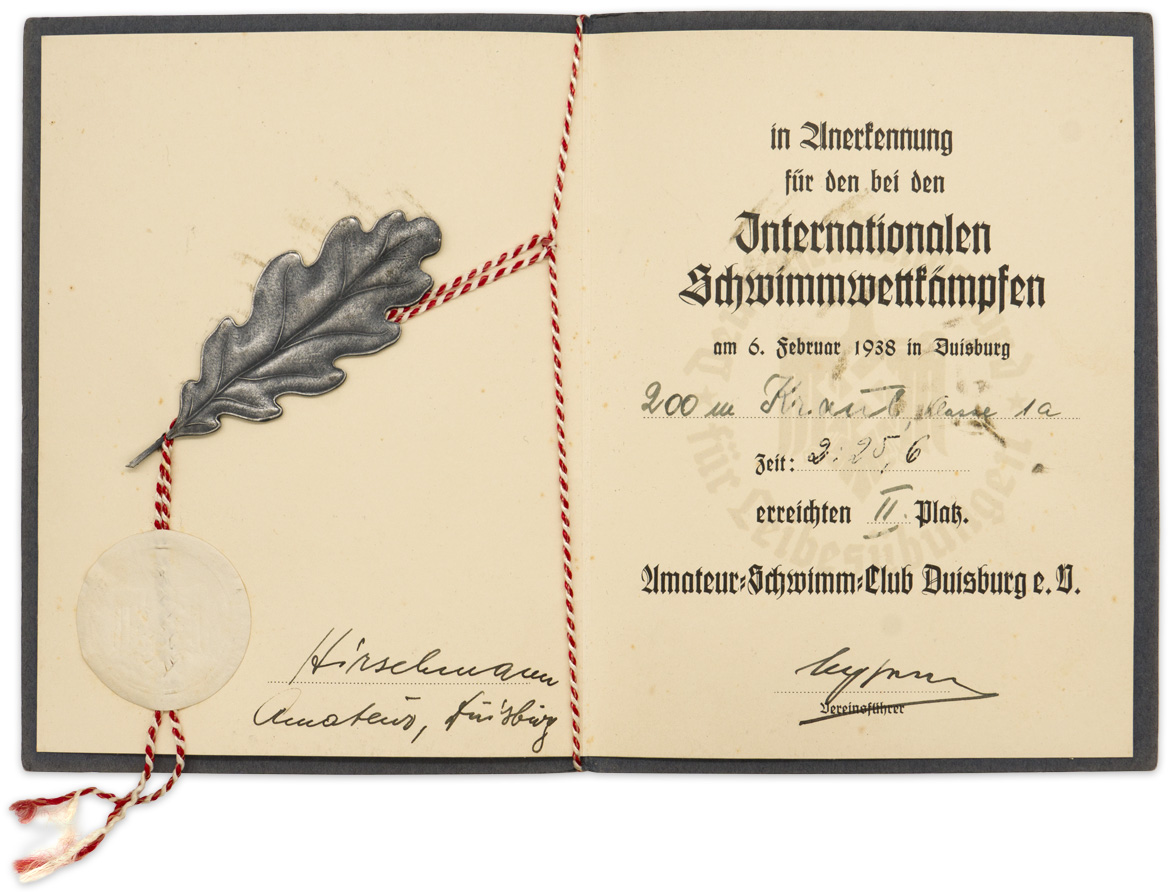 Hirschmann
Amateur, Duisburg
in Anerkennung
für den bei den
Internationalen
Schwimmwettkämpfen
am 6. Februar 1938 in Duisburg
200 m Kraul, Klasse 1a
Zeit: 2:25,6
erreichten II. Platz.
Amateur-Schwimm-Club Duisburg e. V.
Vereinsführer
für Leibesübungen